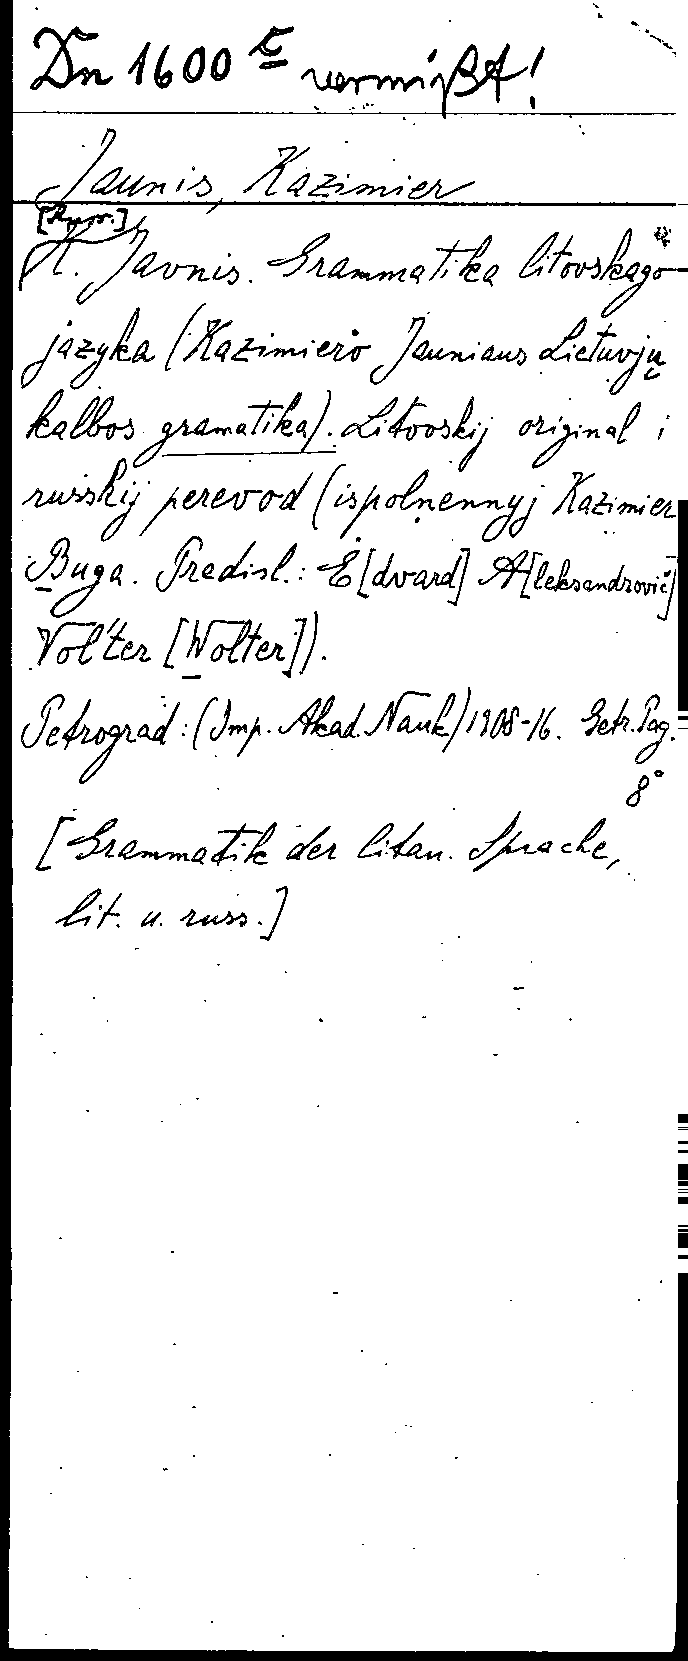 Dn 1600 c vermißt!
Jaunis, Kazimier
[Russ.]
K. Javnis. Grammatika litovskago
jazyka (Kazimiero Jauniaus Lietuvjų
kalbos gramatika). Litovskij original i
russkij perevod (ispolnennyj Kazimier
Buga. Predisl.: E[dvard] A[leksandrovič]
Vol'ter [Wolter]).
Petrograd: (Imp. Akad. Nauk) 1908-16. Getr. Pag.
8°
[Grammatik der litau. Sprache,
lit. u. russ.]